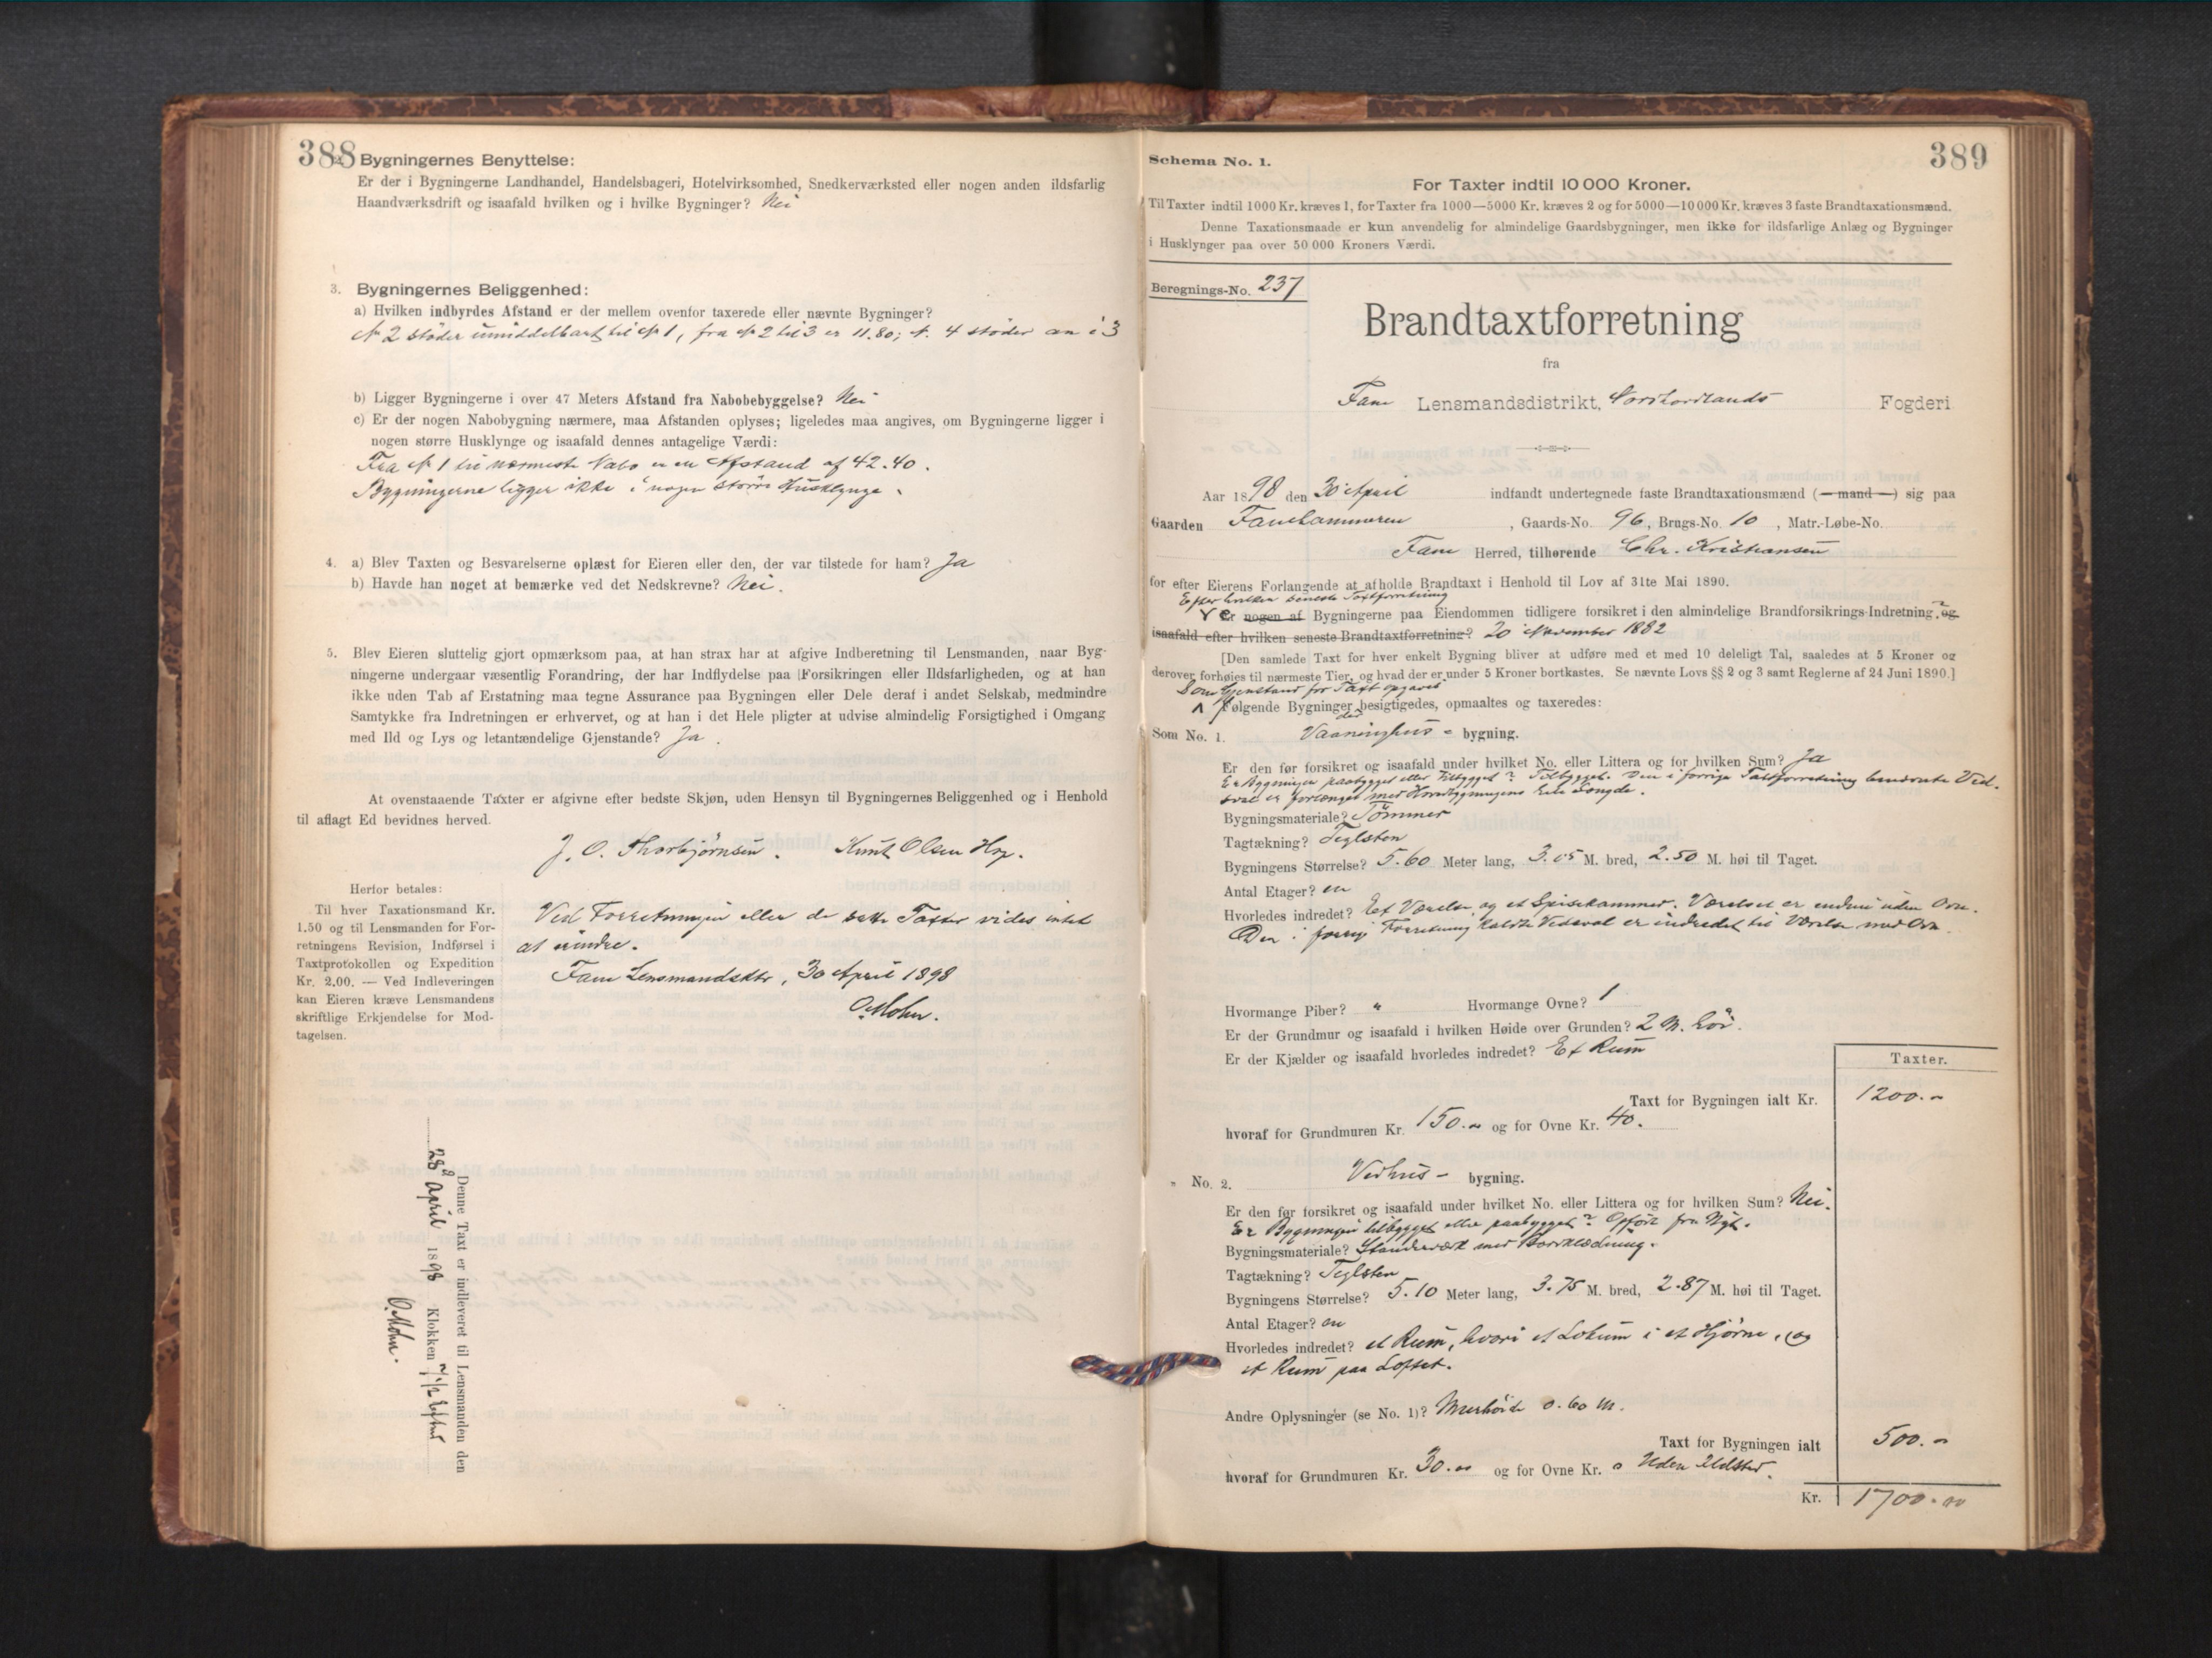 388
2. Bygningernes Benyttelse:
Er der i Bygningerne Landhandel, Handelsbageri, Hotelvirksomhed, Snedkerværksted eller nogen anden ildsfarlig
Haandværksdrift og isaafald hvilken og i hvilke Bygninger? Nei
3. Bygningernes Beliggenhed:
a) Hvilken indbyrdes Afstand er der mellem ovenfor taxerede eller nævnte Bygninger?
N 2 støder umiddelbart til N 1, fra N 2 til 3 er 11.80; N. 4 støder an i 3
b) Ligger Bygningerne i over 47 Meters Afstand fra Nabobebyggelse? Nei
c) Er der nogen Nabobygning nærmere, maa Afstanden oplyses; ligeledes maa angives, om Bygningerne ligger i
nogen større Husklynge og isaafald dennes antagelige Værdi:
Fra N 1 til nærmeste Nabo er en Afstand af 42.40.
Bygningerne ligger ikke i nogen større Husklynge.
4. a) Blev Taxten og Besvarelserne oplæst for Eieren eller den, der var tilstede for ham? Ja
b) Havde han noget at bemærke ved det Nedskrevne? Nei.
5. Blev Eieren sluttelig gjort opmærksom paa, at han strax har at afgive Indberetning til Lensmanden, naar Byg-
ningerne undergaar væsentlig Forandring, der har Indflydelse paa Forsikringen eller Ildsfarligheden, og at han
ikke uden Tab af Erstatning maa tegne Assurance paa Bygningen eller Dele deraf i andet Selskab, medmindre
Samtykke fra Indretningen er erhvervet, og at han i det Hele pligter at udvise almindelig Forsigtighed i Omgang
med Ild og Lys og letantændelige Gjenstande? Ja.
At ovenstaaende Taxter er afgivne efter bedste Skjøn, uden Hensyn til Bygningernes Beliggenhed og i Henhold
til aflagt Ed bevidnes herved.
J. O. Thorbjørnsen. Knut Olsen Hop.
Herfor betales:
Til hver Taxationsmand Kr.
1.50 og til Lensmanden for For-
retningens Revision, Indførsel i
Taxtprotokollen og Expedition
Kr. 2.00. — Ved Indleveringen
kan Eieren kræve Lensmandens
skriftlige Erkjendelse for Mod-
tagelsen.
Ved Forretningen eller de satte Taxter vides intet
at erindre.
Fane Lensmandsktr, 30 April 1898
O. Mohn.
Denne Taxt er indleveret til Lensmanden den
28 April 1898 Klokken 7 1/2 Efter
O. Mohn.
389
Schema No. 1.
For Taxter indtil 10 000 Kroner.
Til Taxter indtil 1000 Kr. kræves 1, for Taxter fra 1000—5000 Kr. kræves 2 og for 5000—10 000 Kr. kræves 3 faste Brandtaxationsmænd.
Denne Taxationsmaade er kun anvendelig for almindelige Gaardsbygninger, men ikke for ildsfarlige Anlæg og Bygninger
i Husklynger paa over 50 000 Kroners Værdi.
Beregnings-No. 237
Brandtaxtforretning
fra
Fane Lensmandsdistrikt, Nordhordlands Fogderi
Aar 1898 den 30 April indfandt undertegnede faste Brandtaxationsmænd (—mand—) sig paa
Gaarden Fanehammeren, Gaards-No. 96, Brugs-No. 10, Matr.-Løbe-No.
Fane Herred, tilhørende Chr. Kristiansen
for efter Eierens Forlangende at afholde Brandtaxt i Henhold til Lov af 31te Mai 1890.
Efter hvilken seneste Taxtforretning
Er nogen af Bygningerne paa Eiendommen tidligere forsikret i den almindelige Brandforsikrings-Indretning, og
isaafald efter hvilken seneste Brandtaxtforretning? 20 November 1882
[Den samlede Taxt for hver enkelt Bygning bliver at udføre med et med 10 deleligt Tal, saaledes at 5 Kroner og
derover forhøies til nærmeste Tier, og hvad der er under 5 Kroner bortkastes. Se nævnte Lovs §§ 2 og 3 samt Reglerne af 24 Juni 1890.]
Som Gjenstand for Taxt opgaves
Følgende Bygninger besigtigedes, opmaaltes og taxeredes:
der
Som No. 1. Vaaninghus - bygning.
Er den før forsikret og isaafald under hvilket No. eller Littera og for hvilken Sum? Ja
Er Bygningen paabygget eller tilbygget? Tilbygget. Den i forrige Taxtforretning benævnte Ved-
sval er forlænget med Hovedbygningens hele Længde.
Bygningsmateriale? Tømmer
Tagtækning? Teglsten
Bygningens Størrelse? 5.60 Meter lang, 3.05 M. bred, 2.50 M. høi til Taget.
Antal Etager? en
Hvorledes indredet? Et Værelse og et Spisekammer. Værelset er endnu uden Ovn.
Den i forrige Forretning kaldte Vedsval er indredet til Værelse med Ovn
Hvormange Piber? " Hvormange Ovne? 1
Er der Grundmur og isaafald i hvilken Høide over Grunden? 2 M. høi.
Er der Kjælder og isaafald hvorledes indredet? Et Rum
Taxter.
Taxt for Bygningen ialt Kr. 1200.-
hvoraf for Grundmuren Kr. 150.00 og for Ovne Kr. 40.
" No. 2. Vedhus - bygning.
Er den før forsikret og isaafald under hvilket No. eller Littera og for hvilken Sum? Nei.
Er Bygningen tilbygget eller paabygget? Opført fra Nyt.
Bygningsmateriale? Standværk med Bordklædning.
Tagtækning? Teglsten
Bygningens Størrelse? 5.10 Meter lang, 3.75 M. bred, 2.87 M. høi til Taget.
Antal Etager? en
Hvorledes indredet? et Rum, hvori et Lokum i et Hjørne, og
et Rum paa Loftet.
Andre Oplysninger (se No. 1)? Murhøide 0.60 M.
Taxt for Bygningen ialt 500.-
hvoraf for Grundmuren Kr. 30.00 og for Ovne Kr. 0 Uden Ildsted.
Kr. 1700.00